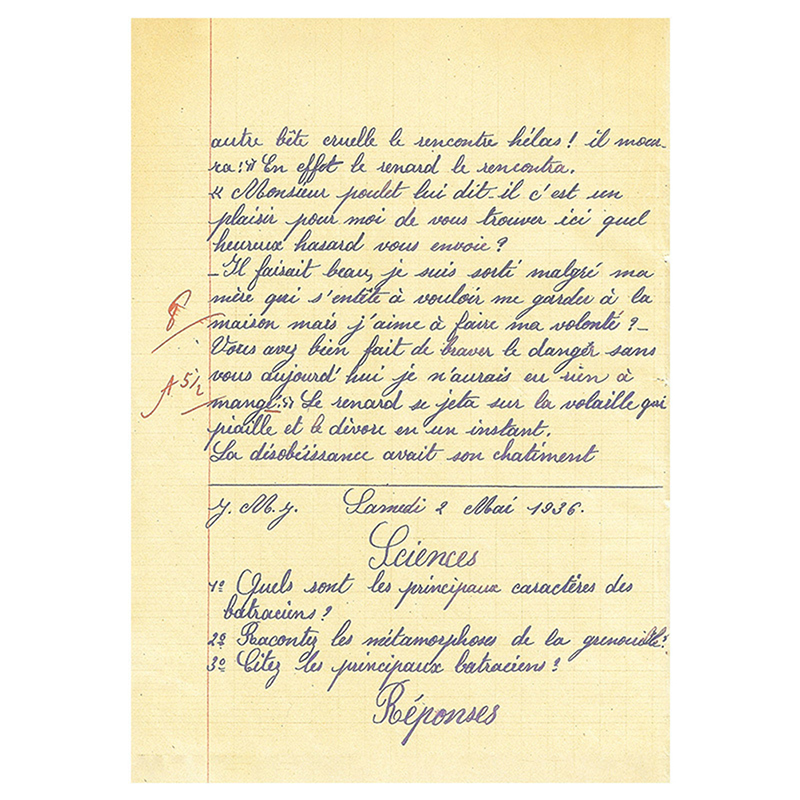 autre bête cruelle le rencontre hélas ! il mour-
ra !» En effet le renard le rencontra.
« Monsieur poulet lui dit-il c'est un
plaisir pour moi de vous trouver ici quel
heureux hasard vous envoie ?
- Il faisait beau, je suis sorti malgré ma
mère qui s'entête à vouloir me garder à la
8
maison mais j'aime à faire ma volonté ? -
Vous avez bien fait de braver le danger sans
A 5/2
vous aujourd'hui je n'aurais eu rien à
mangé !» Le renard se jeta sur la volaille qui
piaille et le dévore en un instant.
La désobéissance avait son chatiment
J. M. J. Samedi 2 Mai 1936.
Sciences
1º Quels sont les principaux caractères des
batraciens ?
2º Racontez les métamorphoses de la grenouille ?
3º Citez les principaux batraciens ?
Réponses